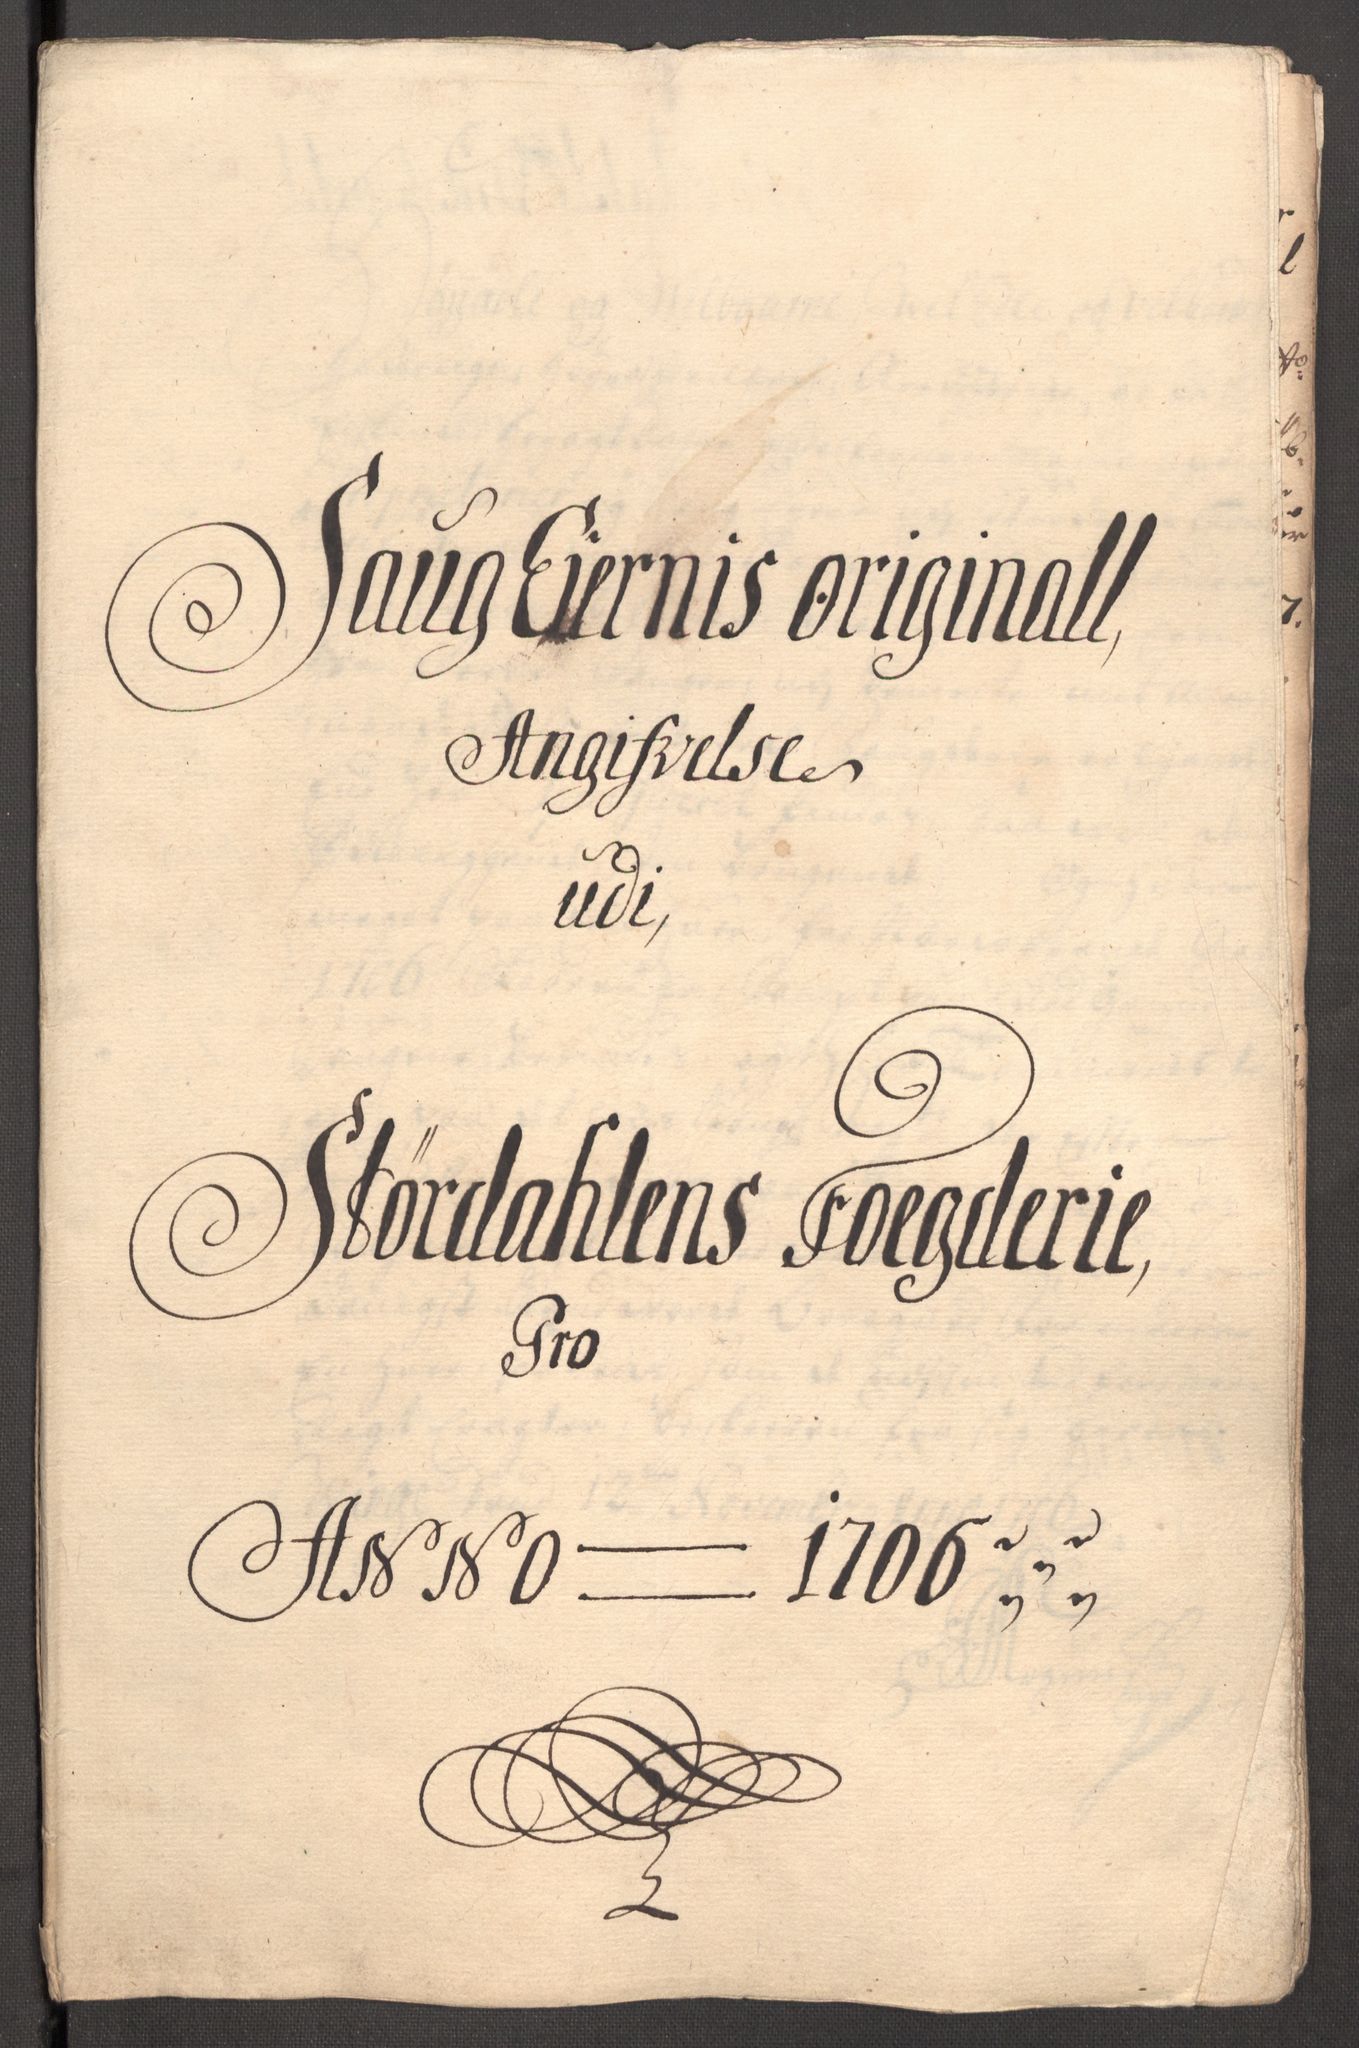 Saug Eiernis originall,
Angifvelse
udi,
Stördahlens Foegderie,
Pro
ANNO = 1706